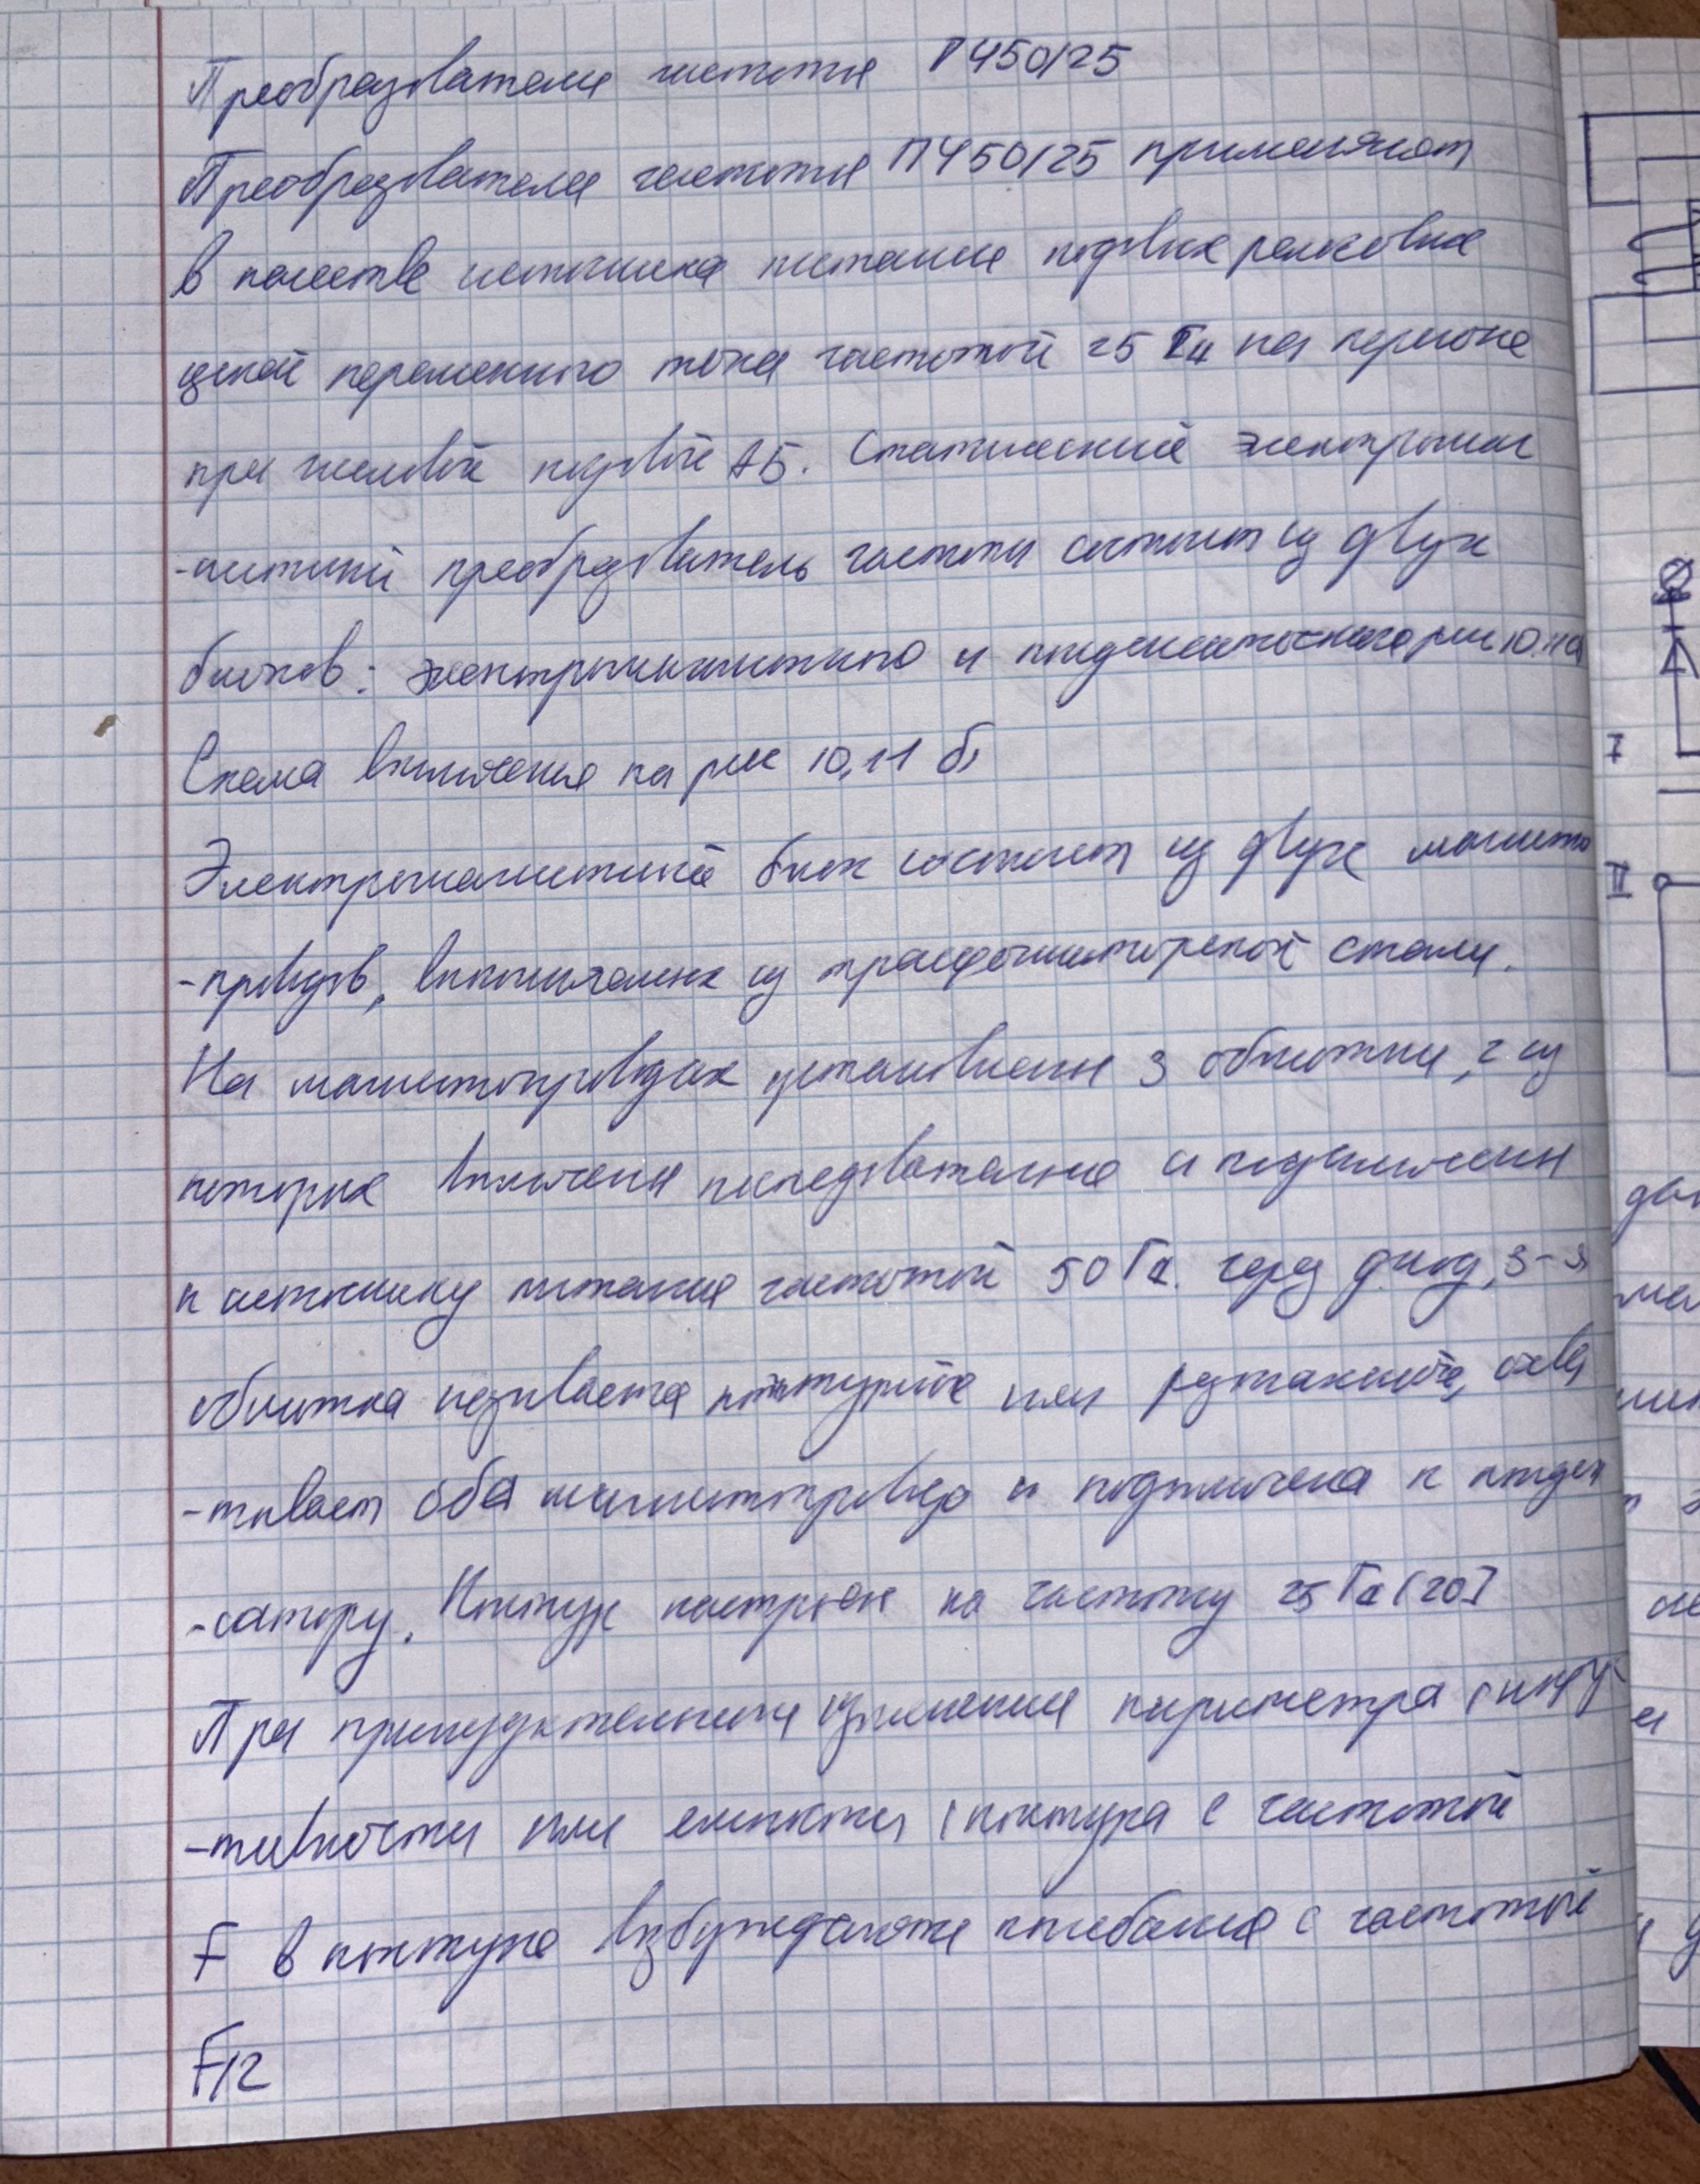 Преобразователи частоты ПЧ50/25
Преобразователи частоты ПЧ50/25 применяют
в качестве источника питания кодовых рельсовых
цепей переменного тока частотой 25 Гц на перегоне
при числовой кодовой АБ. Статический электромаг
-нитный преобразователь частоты состоит из двух
блоков: электромагнитного и конденсаторного рис 10.11а
Схема включения на рис 10,11 б)
Электромагнитный блок состоит из двух магнито
-проводов, выполненных из трансформаторской стали.
На магнитопроводах установлены 3 обмотки, 2 из
которых включены последовательно и подключены
к источнику питания частотой 50 Гц. через диод, 3-я
обмотка называется контурной или
-тывает оба магнитопровода и подключена к конден
-сатору. Контур настроен на частоту 25 Гц [20]
При принудительном изменении параметра (инду
-тивности или емкости) контура с частотой
F в контуре возбуждаются колебания с частотой
F/2
I
II